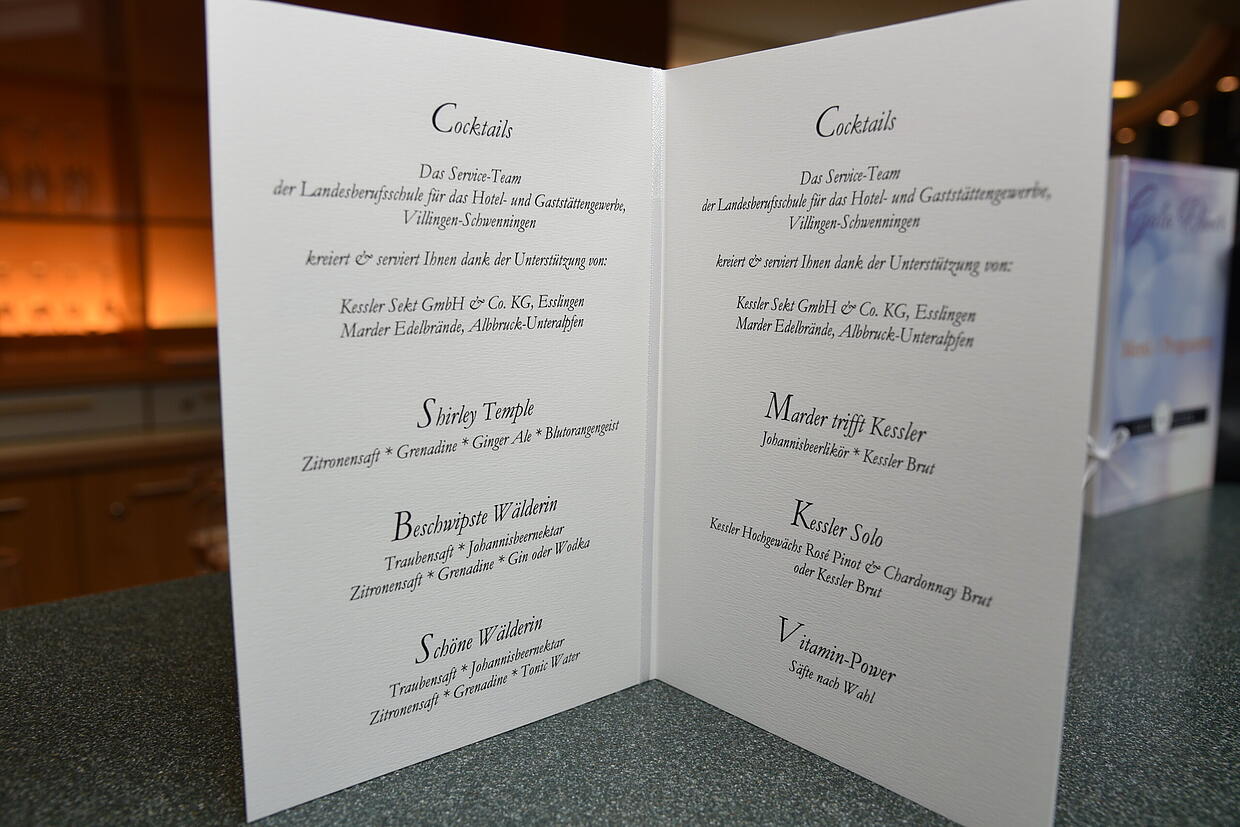 Cocktails
Das Service-Team
der Landesberufsschule für das Hotel- und Gaststättengewerbe,
Villingen-Schwenningen
kreiert & serviert Ihnen dank der Unterstützung von:
Kessler Sekt GmbH & Co. KG, Esslingen
Marder Edelbrände, Albbruck-Unteralpfen
Shirley Temple
Zitronensaft * Grenadine * Ginger Ale * Blutorangengeist
Beschwipste Wälderin
Traubensaft * Johannisbeernektar
Zitronensaft * Grenadine * Gin oder Wodka
Schöne Wälderin
Traubensaft * Johannisbeernektar
Zitronensaft * Grenadine * Tonic Water
Cocktails
Das Service-Team
der Landesberufsschule für das Hotel- und Gaststättengewerbe,
Villingen-Schwenningen
kreiert & serviert Ihnen dank der Unterstützung von:
Kessler Sekt GmbH & Co. KG, Esslingen
Marder Edelbrände, Albbruck-Unteralpfen
Marder trifft Kessler
Johannisbeerlikör * Kessler Brut
Kessler Solo
Kessler Hochgewächs Rosé Pinot & Chardonnay Brut
oder Kessler Brut
Vitamin-Power
Säfte nach Wahl